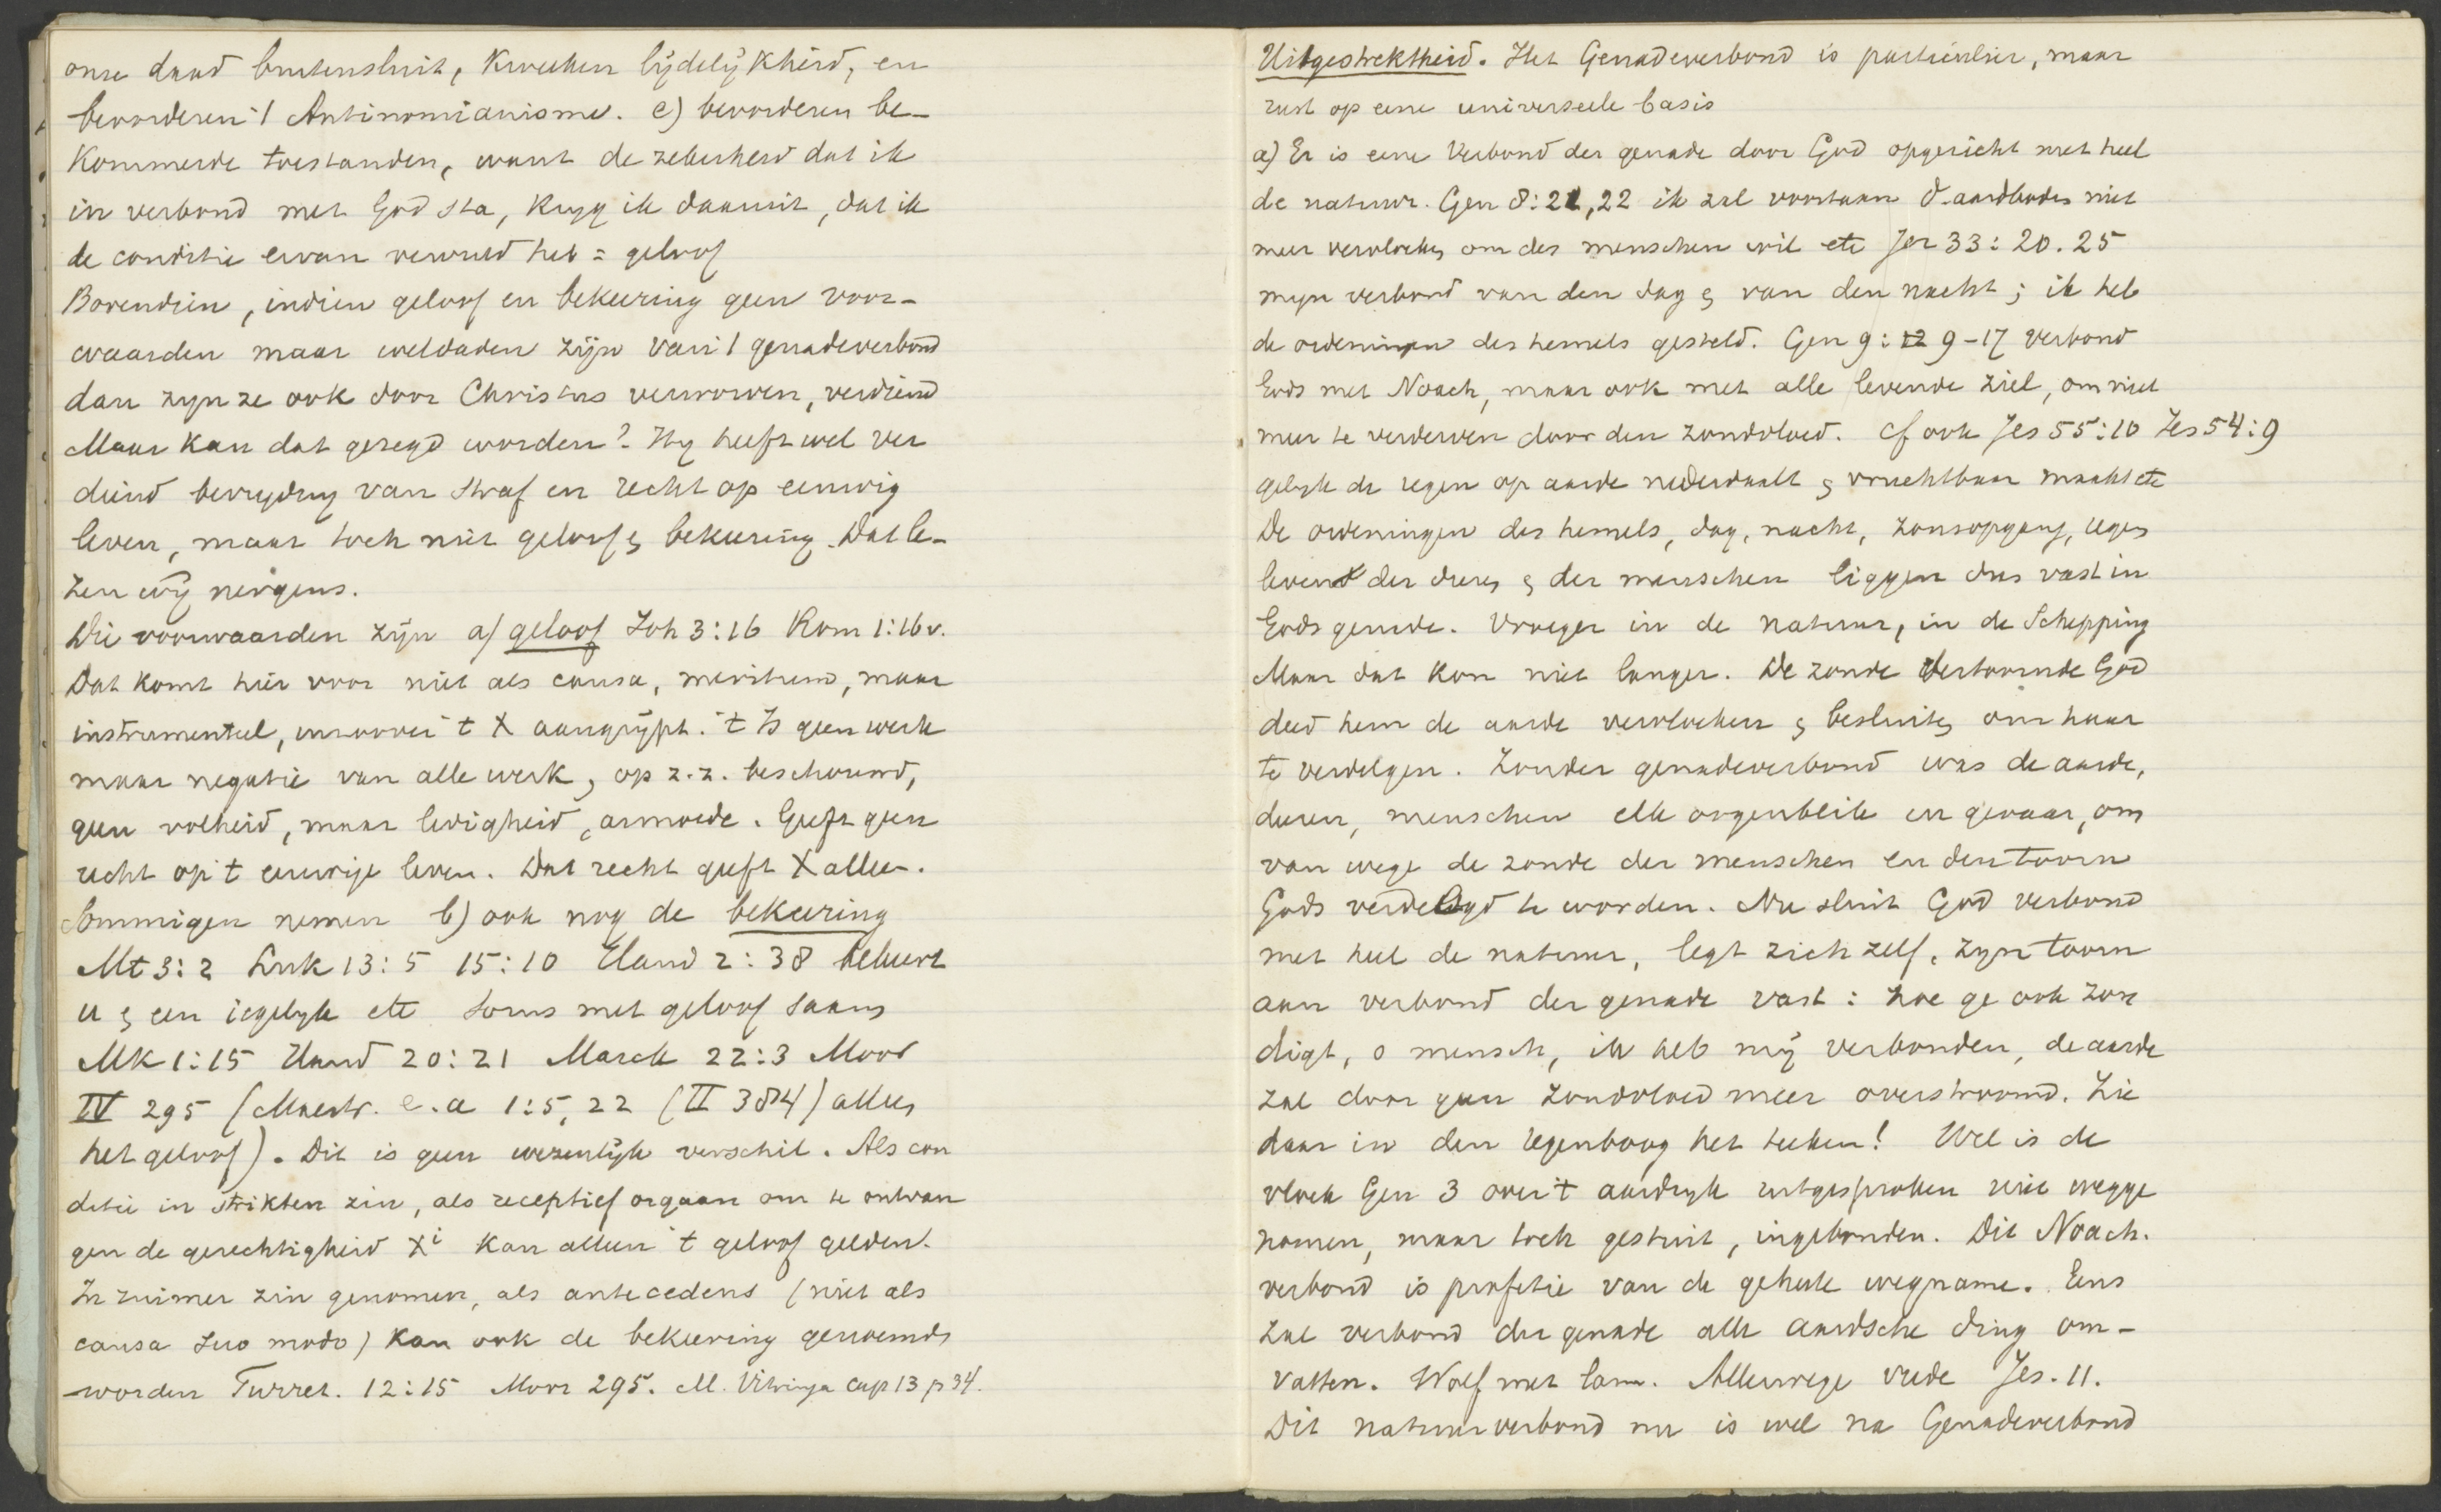 onze daad buitensluit, kweeken lijdelijkheid, en
bevorderen 't Antinomianisme. c) bevorderen be-
kommerde toestanden, want de zekerheid dat ik
in verbond met God sta, kryg ik daaruit, dat ik
de conditie ervan vervuld heb = geloof
Bovendien, indien geloof en bekeering geen voor-
waarden maar weldaden zijn van 't genadeverbond
dan zyn ze ook door Christus verworven, verdiend
Maar kan dat gezegd worden? Hy heeft wel ver
diend bevryding van straf en recht op eeuwig
leven, maar toch niet geloof & bekeering. Dat le-
zen wij nergens.
Die voorwaarden zijn a) geloof Joh 3:16 Rom 1:16v.
Dat komt hier voor niet als causa, meritum, maar
instrumenteel, waarvoor 't X aangrijpt. 't Is geen werk
maar negatie van alle werk, op z.z. beschouwd,
geen volheid, maar ledigheid, armoede. Geeft geen
recht op 't eeuwige leven. Dat recht geeft X alleen.
Sommigen nemen b) ook nog de bekeering
Mt 3:2 Luk 13:5 15:10 Hand 2:38 bekeert
u & een iegelyk etc soms met geloof saam
Mk 1:15 Hand 20:21 Marck 22:3 Moor
IV 295 (Mastr. e.a 1:5, 22 (II 384) alleen
het geloof). Dit is geen wezenlijk verschil. Als con
ditie in strikten zin, als receptief orgaan om te ontvan
gen de gerechtigheid Xi kan alleen 't geloof gelden.
In ruimer zin genomen, als antecedens (niet als
causa suo modo) kan ook de bekeering genoemd
worden Turret. 12:15 Moor 295. M. Vitringa cap 13 p 34.
Uitgestrektheid. Het Genadeverbond is particulier, maar
rust op eene universeele basis
a) Er is eene Verbond der genade door God opgericht met heel
de natuur. Gen 8:21, 22 ik zal voortaan d. aardbodem niet
meer vervloeken om des menschen wil etc Jer 33:20.25
myn verbond van den dag & van den nacht; ik heb
de ordeningen des hemels gesteld. Gen 9: 9-17 Verbond
Gods met Noach, maar ook met alle levende ziel, om niet
meer te verderven door den zondvloed. Cf ook Jes 55:10 Jes 54:9
gelyk de regen op aarde nederdaalt & vruchtbaar maakt etc
De ordeningen des hemels, dag, nacht, zonsopgang, regen
leven der dieren & der menschen liggen dus vast in
Gods genade. Vroeger in de natuur, in de Schepping
Maar dat kon niet langer. De zonde vertoornde God
deed hem de aarde vervloeken & besluiten om haar
te verdelgen. Zonder genadeverbond was de aarde,
dieren, menschen elk oogenblik in gevaar, om
van wege de zonde der menschen en den toorn
Gods verdelgd te worden. Nu sluit God verbond
met heel de natuur, legt zich zelf, zyn toorn
aan verbond der genade vast: hoe ge ook zon
digt, o mensch, ik heb mij verbonden, de aarde
zal door geen zondvloed meer overstroomd. Zie
daar in den regenboog het teeken! Wel is de
vloek Gen 3 over 't aardryk uitgesproken niet wegge
nomen, maar toch gestuit, ingebonden. Dit Noach.
verbond is profetie van de geheele wegname. Eens
zal verbond der genade alle aardsche ding om-
vatten. Wolf met lam. Allerwege vrede Jes. 11.
Dit natuurverbond nu is wel na Genadeverbond